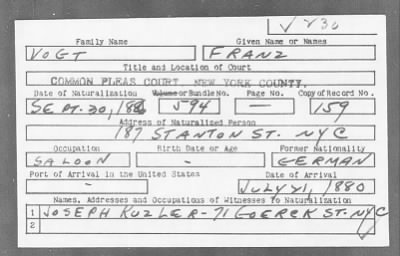 V 230
Family Name Given Name or Names
VOGT FRANZ
Title and Location of Court
COMMON PLEAS COURT, NEW YORK COUNTY.
Date of Naturalization Volume or Bundle No. Page No. Copy of Record No.
SEPT. 30, 594 — 159
Address of Naturalized Person
187 STANTON ST. NYC
Occupation Birth Date or Age Former Nationality
SALOON - GERMAN
Port of Arrival in the United States Date of Arrival
- JULY 21, 1880
Names, Addresses and Occupations of Witnesses To Naturalization
1 JOSEPH KUZLER - 71 GOERCK ST. NYC
2